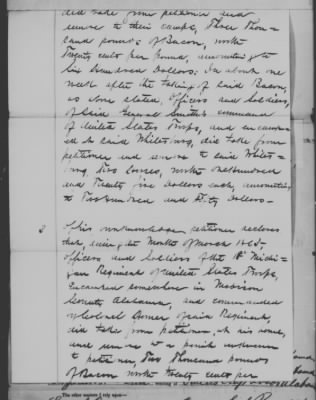 did take from petitioner and
remove to their camps, Three Thou=
sand pounds of Bacon, worth
Twenty cents per pound, amounting to
Six Hundred Dollars. In about one
week after the taking of said Bacon,
as above stated, Officers and Soldiers,
of said General Smith's command
of United States Troops, and encamp=
ed at said Whitesburg, did take from
petitioner and remove to said Whites=
burg, Two horses, worth One Hundred
and Twenty five Dollars each, amounting
to Two Hundred and Fifty Dollars—
3 This petitioner declares
that, during the Month of March 1865,
Officers and Soldiers of the 18" Michi=
gan Regiment of United States Troops,
Encamped somewhere in Madison
County Alabama, and commanded
by Colonel of said Regiment,
did take from petitioner, at his home,
and remove to a point unknown
to petitioner, Two Thousand pounds
of Bacon worth Twenty cents per
The other matters I rely upon—